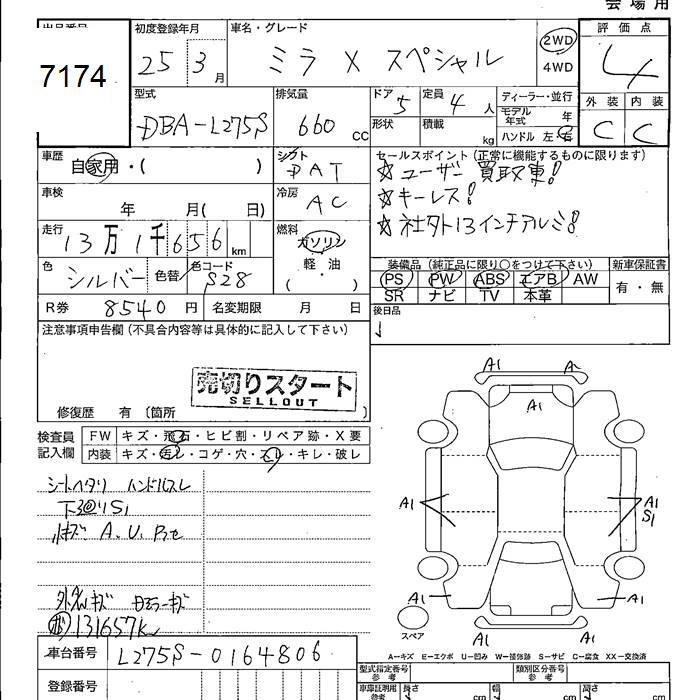 会場用
出品番号
7174
初度登録年月
25 3月
車名・グレード
ミラ X スペシャル
2WD
4WD
評価点
4
外装 内装
C C
型式
DBA-L275S
排気量
660 cc
ドア 5
定員 4 人
形状
積載 kg
ディーラー・並行
モデル年式 年
ハンドル 左・右
車歴
自家用・( )
シフト
DAT
セールスポイント(正常に機能するものに限ります)
☆ユーザー買取車!
☆キーレス!
☆社外13インチアルミ!
車検
年 月( 日)
冷房
AC
走行
13万1千656km
燃料
ガソリン
軽・油
( ・ )
色
シルバー
色替
色コード
S28
装備品(純正品に限り○をつけて下さい)
PS PW ABS エアB AW
SR ナビ TV 本革
新車保証書
有・無
R券 8540円
名変期限 月 日
後日品
注意事項申告欄(不具合内容等は具体的に記入して下さい)
売切りスタート
SELLOUT
修復歴 有 〔箇所 〕
検査員
記入欄
FW キズ・飛石・ヒビ割・リペア跡・X要
内装 キズ・汚レ・コゲ・穴・スレ・キレ・破レ
シートヘタリ ハンドルスレ
A.U.
131657k
車台番号 L275S-0164806
登録番号
A1
A1
A1
A1
A1
S1
A1
A1
A1
A1
スペア
A-キズ E-エクボ U-凹み W-補修跡 S-サビ C-腐食 XX-交換済
型式指定番号
参考
類別区分番号
参考
車庫証明用
参考
長さ cm
幅 cm
高さ cm